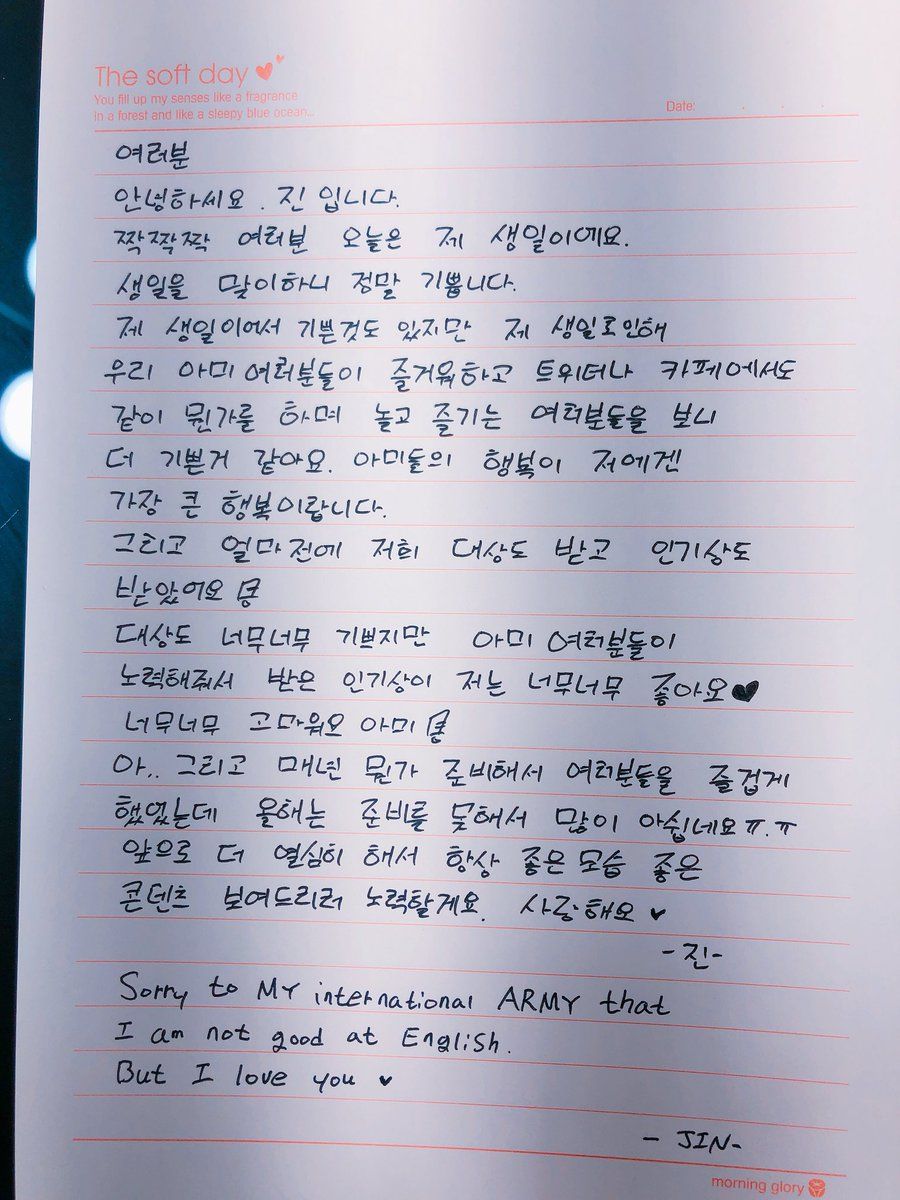 The soft day
You fill up my senses like a fragrance
in a forest and like a sleepy blue ocean...
Date: . . .
여러분
안녕하세요. 진 입니다.
짝짝짝 여러분 오늘은 제 생일이에요.
생일을 맞이하니 정말 기쁩니다.
제 생일이어서 기쁜것도 있지만 제 생일로인해
우리 아미여러분들이 즐거워하고 트위터나 카페에서도
같이 뭔가를 하며 놀고 즐기는 여러분들을 보니
더 기쁜거 같아요. 아미들의 행복이 저에겐
가장 큰 행복이랍니다.
그리고 얼마전에 저희 대상도 받고 인기상도
받았어요
대상도 너무너무 기쁘지만 아미 여러분들이
노력해줘서 받은 인기상이 저는 너무너무 좋아요♥
너무너무 고마워요 아미
아.. 그리고 매년 뭔가 준비해서 여러분들을 즐겁게
했었는데 올해는 준비를 못해서 많이 아쉽네요ㅠ.ㅠ
앞으로 더 열심히 해서 항상 좋은모습 좋은
콘텐츠 보여드리려 노력할게요. 사랑해요♥
-진-
Sorry to MY international ARMY that
I am not good at English.
But I love you ♥
- JIN-
morning glory